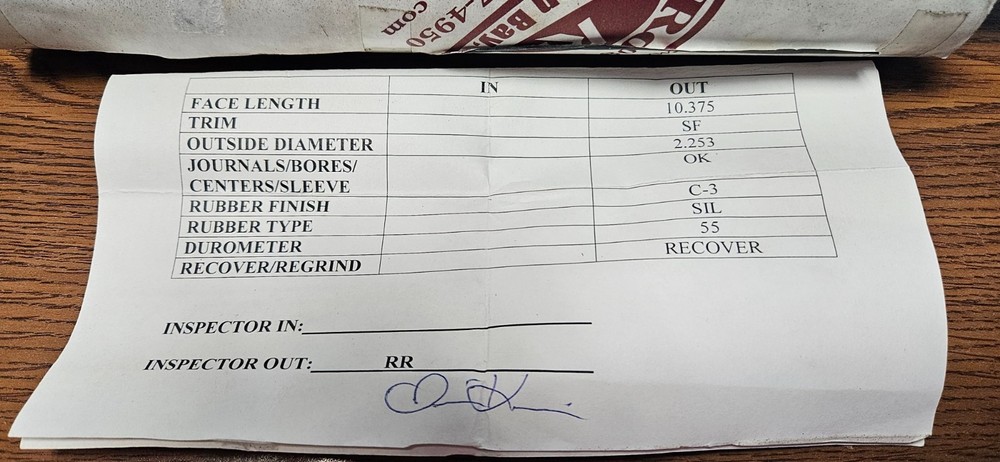 com
-4950
Bay
Ro
IN OUT
FACE LENGTH 10.375
TRIM SF
OUTSIDE DIAMETER 2.253
JOURNALS/BORES/ OK
CENTERS/SLEEVE
RUBBER FINISH C-3
RUBBER TYPE SIL
DUROMETER 55
RECOVER/REGRIND RECOVER
INSPECTOR IN:
INSPECTOR OUT: RR